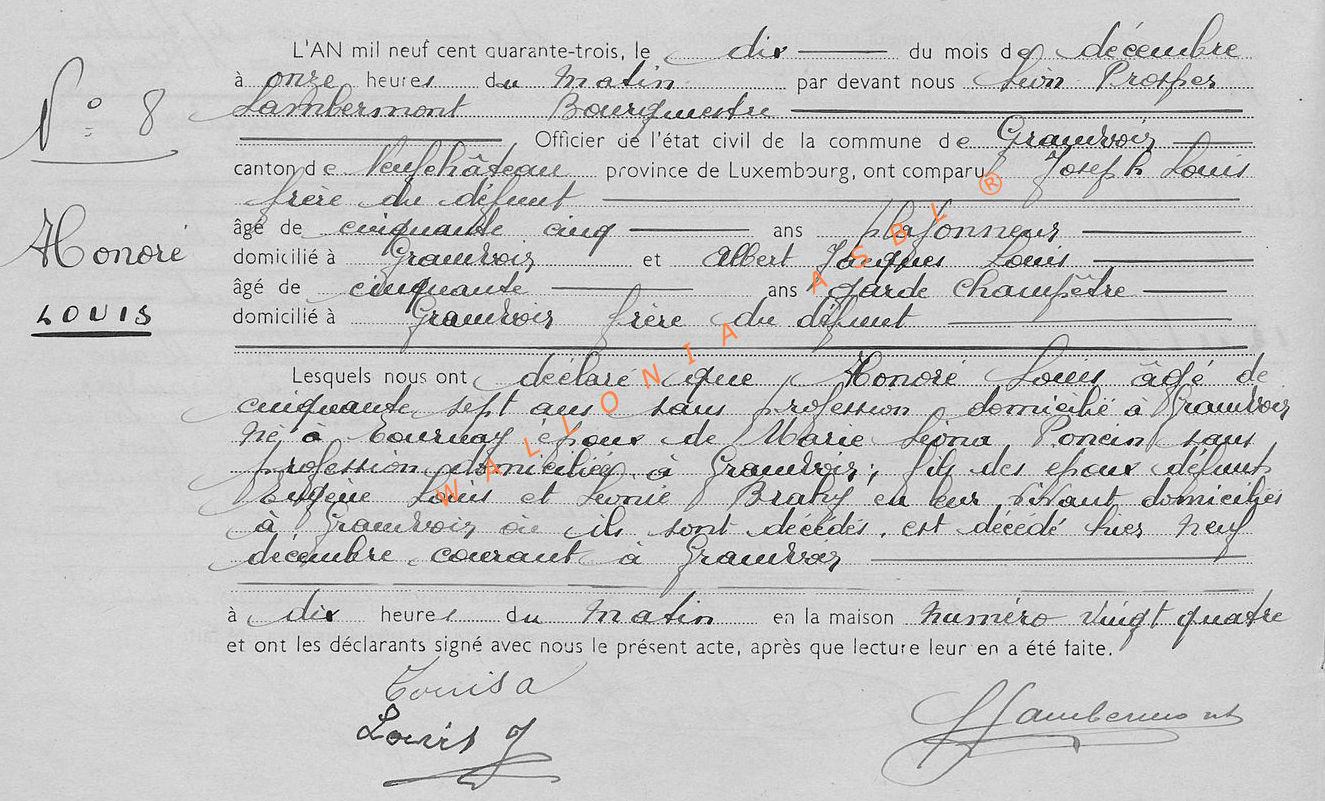 L'AN mil neuf cent quarante-trois, le dix du mois de décembre
N° 8
à onze heures du matin par devant nous Léon Prosper
Lambermont Bourgmestre
Officier de l'état civil de la commune de Grandvoir
canton de Neufchâteau province de Luxembourg, ont comparu Joseph Louis
frère du défunt
Honoré
LOUIS
âgé de cinquante cinq ans plafonneur
domicilié à Grandvoir et Albert Jacques Louis
âgé de cinquante ans garde champêtre
domicilié à Grandvoir frère du défunt
Lesquels nous ont déclaré que Honoré Louis âgé de
cinquante sept ans sans profession domicilié à Grandvoir
né à Tournay époux de Marie Léona Poncin sans
profession domiciliée à Grandvoir, fils des époux défunts
Eugène Louis et Léonie Brahy en leur vivant domiciliés
à Grandvoir où ils sont décédés, est décédé hier neuf
décembre courant à Grandvoir
à dix heures du matin en la maison numéro vingt quatre
et ont les déclarants signé avec nous le présent acte, après que lecture leur en a été faite.
Louis a
Louis J
Lambermont
WALLONIA ASBL ®